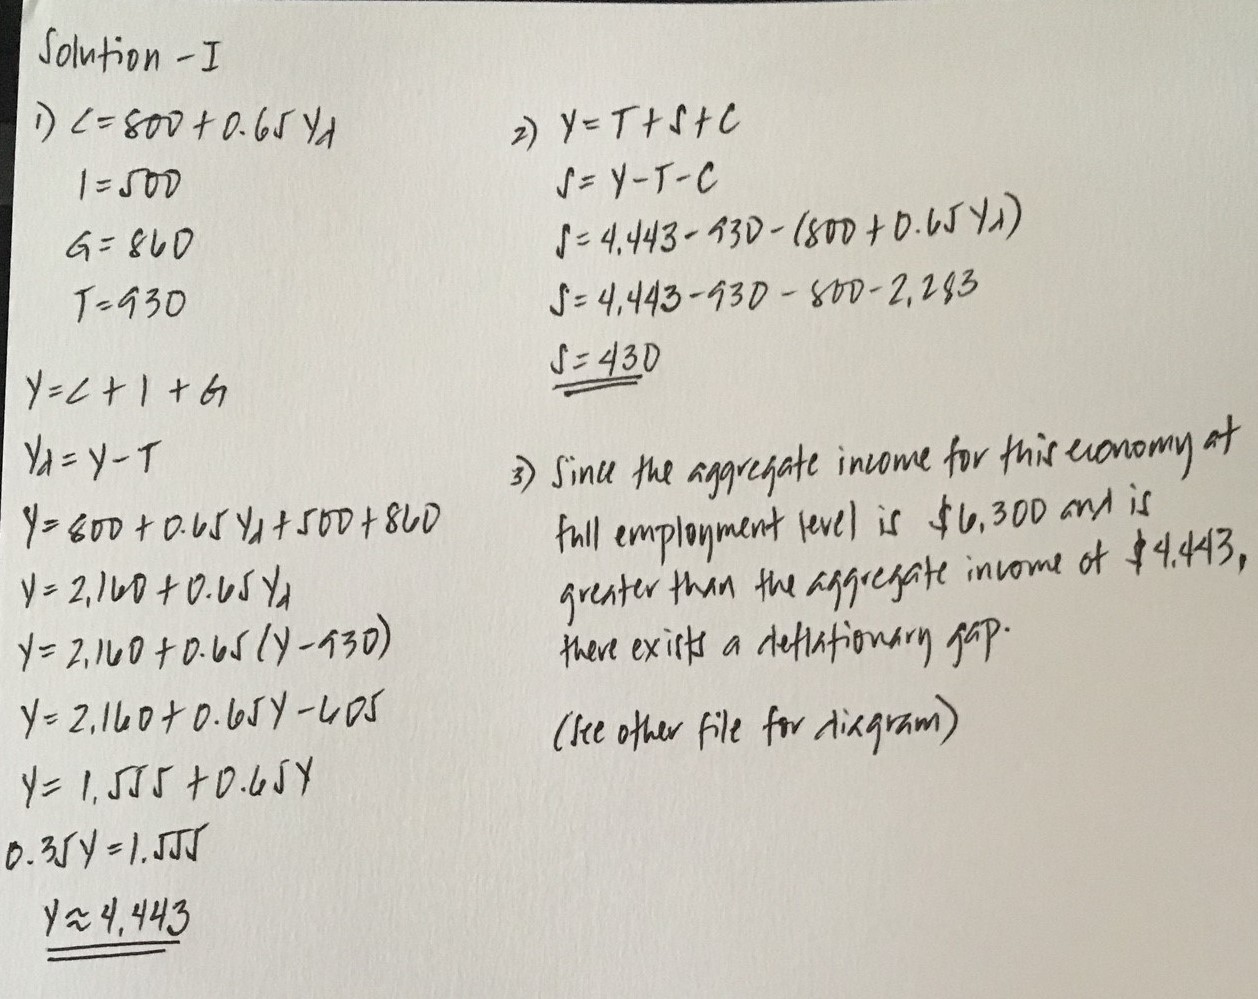 Solution - I
1) C = 800 + 0.65 Yd
I = 500
G = 860
T = 930
Y = C + I + G
Yd = Y - T
Y = 800 + 0.65 Yd + 500 + 860
Y = 2,160 + 0.65 Yd
Y = 2,160 + 0.65 (Y - 930)
Y = 2,160 + 0.65Y - 605
Y = 1,555 + 0.65Y
0.35Y = 1,555
Y ≈ 4,443
2) Y = T + S + C
S = Y - T - C
S = 4,443 - 930 - (800 + 0.65 Yd)
S = 4,443 - 930 - 800 - 2,283
S = 430
3) Since the aggregate income for this economy at
full employment level is $6,300 and is
greater than the aggregate income of $4,443,
there exists a deflationary gap.
(See other file for diagram)